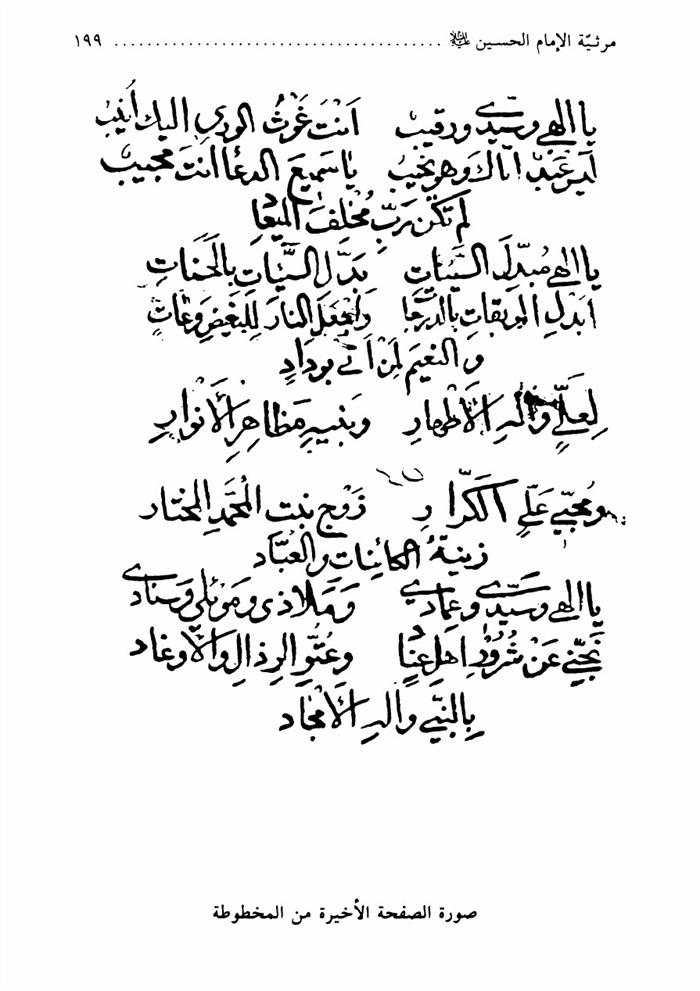 مرثيّة الإمام الحسين عليه السلام ........................................ ١٩٩
يا الهي وسيّدي ورقيب انت غوث الوري اليك أنيب
عبد اتاك وهو نجيب يا سميع الدعا انت مجيب
لم تكن ربّ مخلف الميعاد
يا الهي مبدّل السّيئات بدّل السّيئات بالحسنات
ابدل الموبقات بالدرجا واجعل النار للبغيض وعات
والنعيم لمن اتى بوداد
لعليّ وآله الأطهار وبنيه مظاهر الأنوار
ومحبّي عليّ الكرّار زوج بنت المحمّد المختار
زينة الكائنات والعبّاد
يا الهي وسيّدي وعمادي وملاذي وموئلي وسنادي
نجّني عن شرور اهل عناد وعتوّ الرذال والأوغاد
بالنبّي وآله الأمجاد
صورة الصفحة الأخيرة من المخطوطة